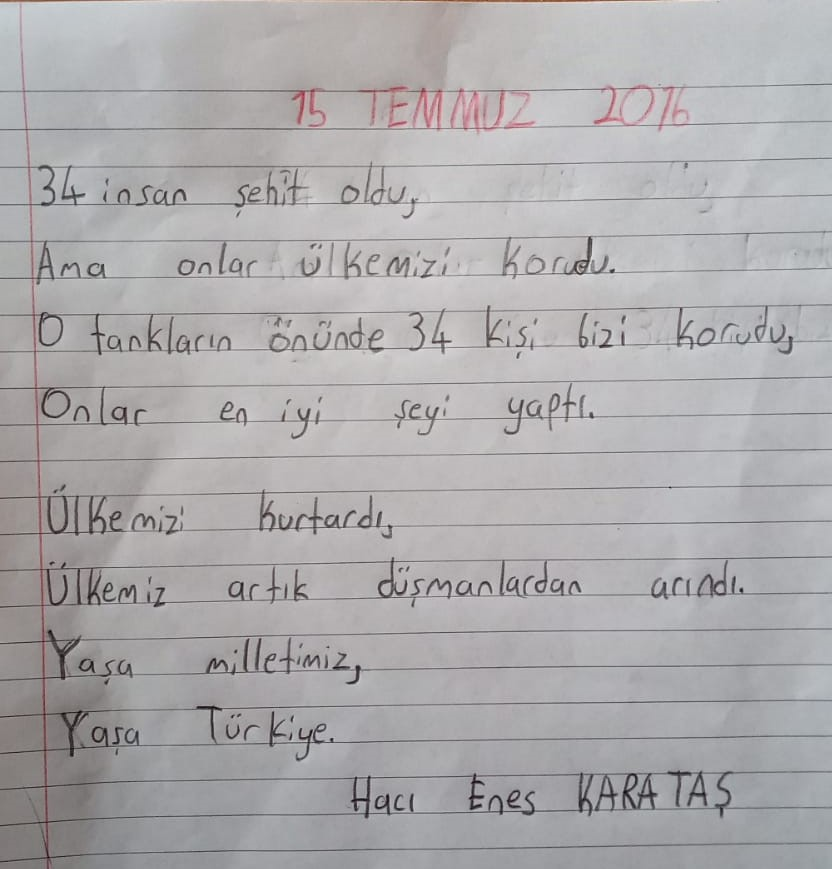 15 TEMMUZ 2016
34 insan şehit oldu,
Ama onlar ülkemizi korudu.
O tankların önünde 34 kişi bizi korudu,
Onlar en iyi şeyi yaptı.
Ülkemizi kurtardı,
Ülkemiz artık düşmanlardan arındı.
Yaşa milletimiz,
Yaşa Türkiye.
Hacı Enes KARATAŞ